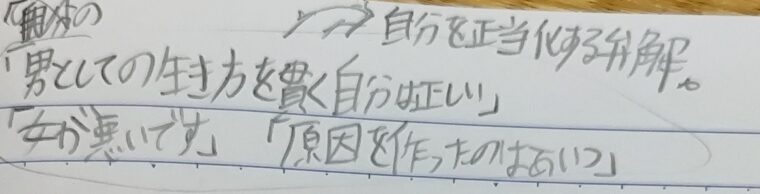 自分を正当化する弁解。
「男としての生き方を貫く自分は正しい」
「女が悪いです」 「原因を作ったのはあいつ」